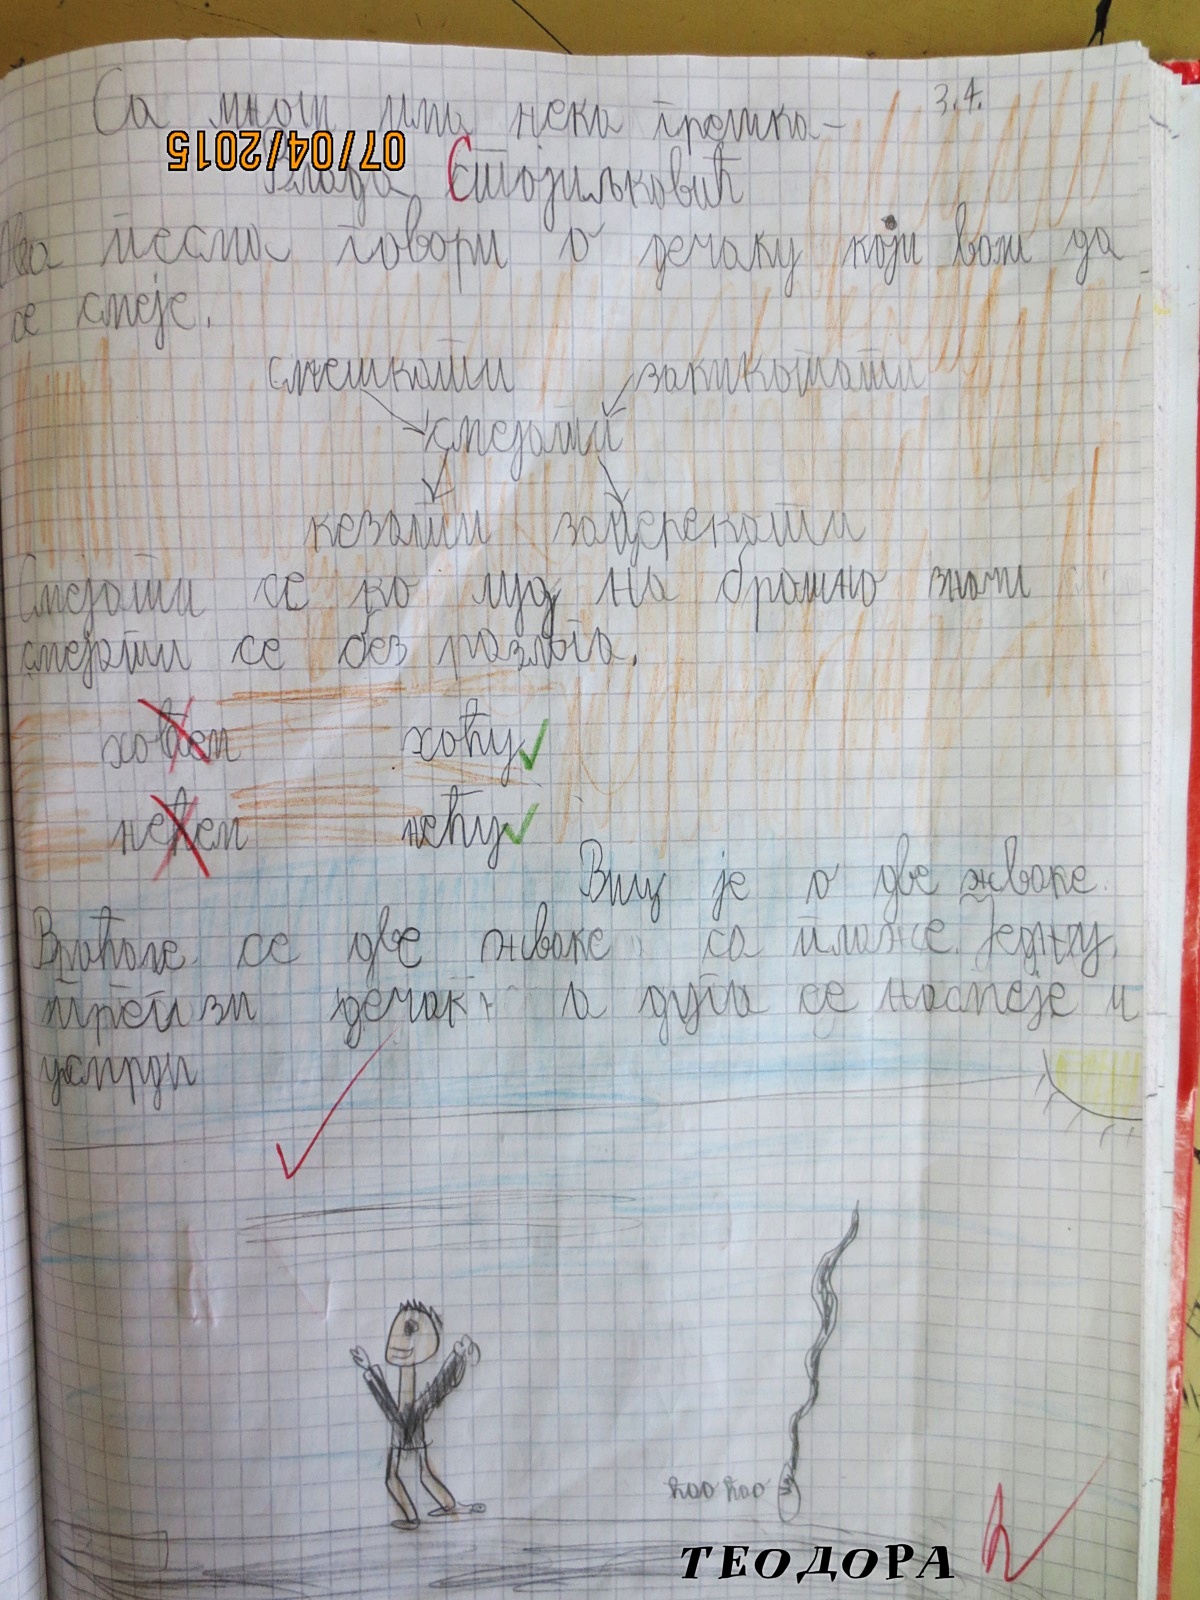 Са мном има нека грешка- 3.4.
07/04/2015
Влада Стојиљковић
Ова песма говори о дечаку који воли да
се смеје.
смешкати закикотати
смејати
кезати зацерекати
Смејати се ко луд на брашно значи
смејати се без разлога.
хоћем хоћу
нећем нећу
Виц је о две жваке.
Враћале се две жваке са плаже. Једну
прегази дечак а друга се насмеје и
усмрди
ћао ћао
ТЕОДОРА